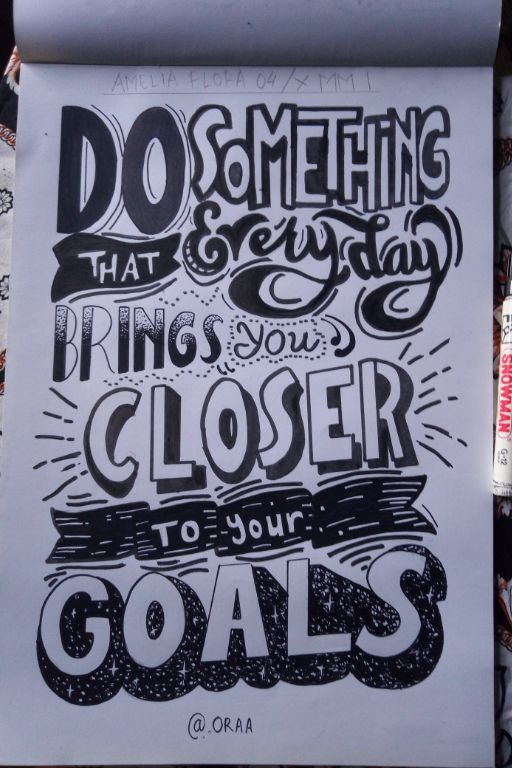 AMELIA FLORA 04/X MM I
DO SOMETHING
THAT Every day
BRINGS you
CLOSER
TO your
GOALS
@.ORAA
SNOWMAN
G-12